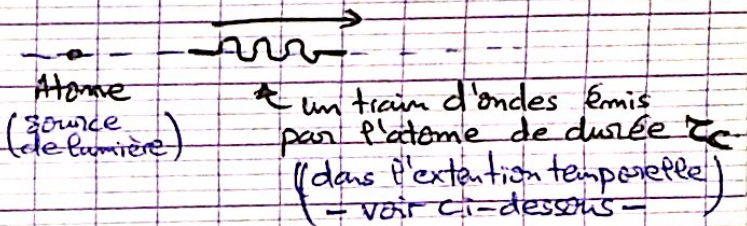 Atome
(source
de lumière)
un train d'ondes émis
par l'atome de durée τc
(dans l'extention temporelle)
- voir ci-dessous -